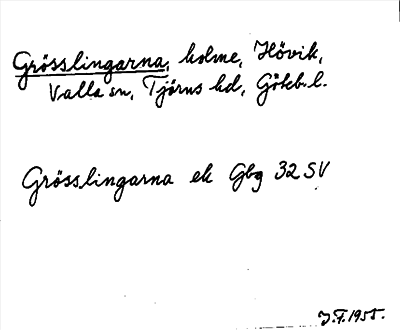 Grösslingarna, holme, Hövik,
Valla sn, Tjörns hd, Göteb. l.
Grösslingarna ek Gbg 32 SV
J.F. 1955.